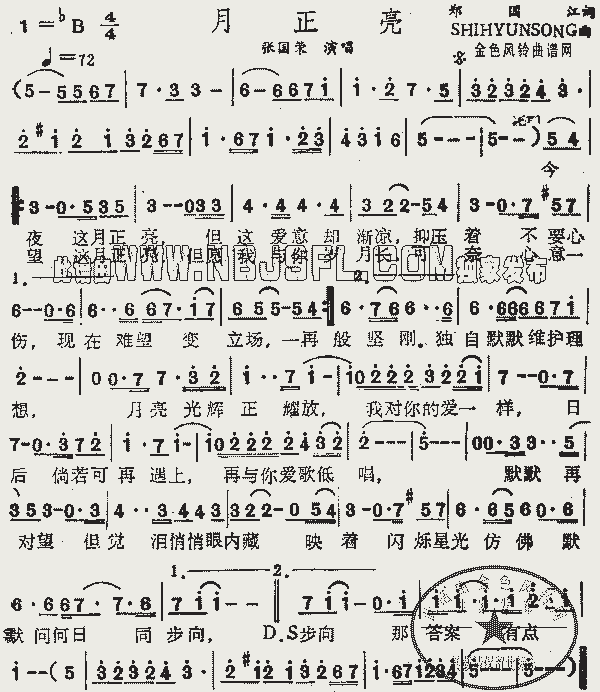 月 正 亮
郑 国 江 词
1=♭B 4/4
SHIHYUNSONG 曲
♩=72
张国荣 演唱
金色风铃曲谱网
(5-5567 | 7·33- | 6-6671 | 1·27·5 | 323243·
2#1213267 | 1·671·23 | 4316 | 5--- | 5--) 54
今
3-0·535 | 3--033 | 4·44·4 | 322-54 | 3-0·7#57
夜 这月正亮, 但 这 爱意 却 渐凉,抑压 着 不 要心
望 这月正
WWW.NBJSFL.COM
独家发布
1.
2.
6--0·6 | 6··667·17 | 6 55-54 | 6·766··6 | 6·666671
伤, 现 在 难望 变 立场,一再 般 坚 刚。独 自默默维护理
2--- | 00·77·32 | 1··71- | 10222322 1 | 7--0·7
想, 月 亮 光 辉 正 耀放, 我对你的爱一样, 日
7-0·372 | 1·71- | 1022224 32 | 2--- | 5--- | 00·33··5
后 倘若可 再 遇上, 再与你爱歌低 唱, 默默 再
353-0·3 | 4··3443 | 322-054 | 3-0·7#57 | 6·6560·6
对望 但觉 泪悄悄眼内藏 映 着 闪 烁星光 仿 佛 默
1.
2.
6·667·7·6 | 711-- | 711-0·1 | 11·12·1
默 问何日 同 步向, D.S步向 那 答案 有点
1--(5 | 323243· | 2#12132 67 | 1·671234 | 5--- | 5--)